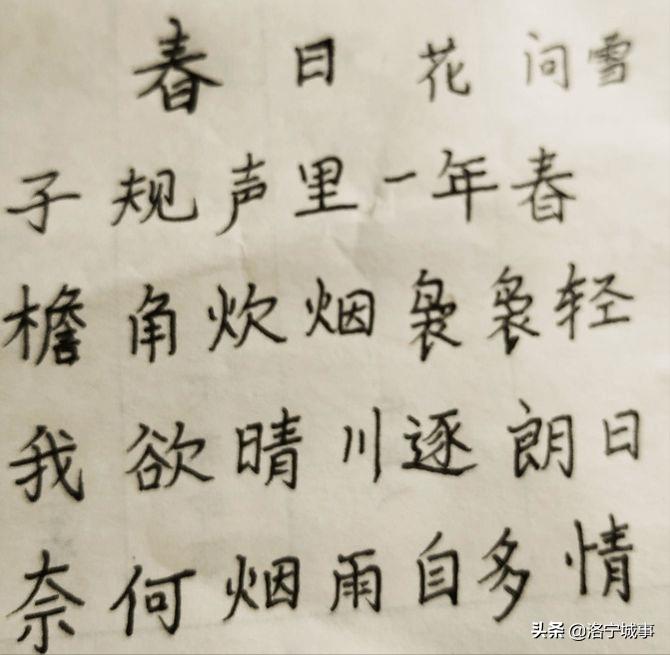 春日 花问雪
子规声里一年春
檐角炊烟袅袅轻
我欲晴川逐朗日
奈何烟雨自多情
头条 @洛宁城事